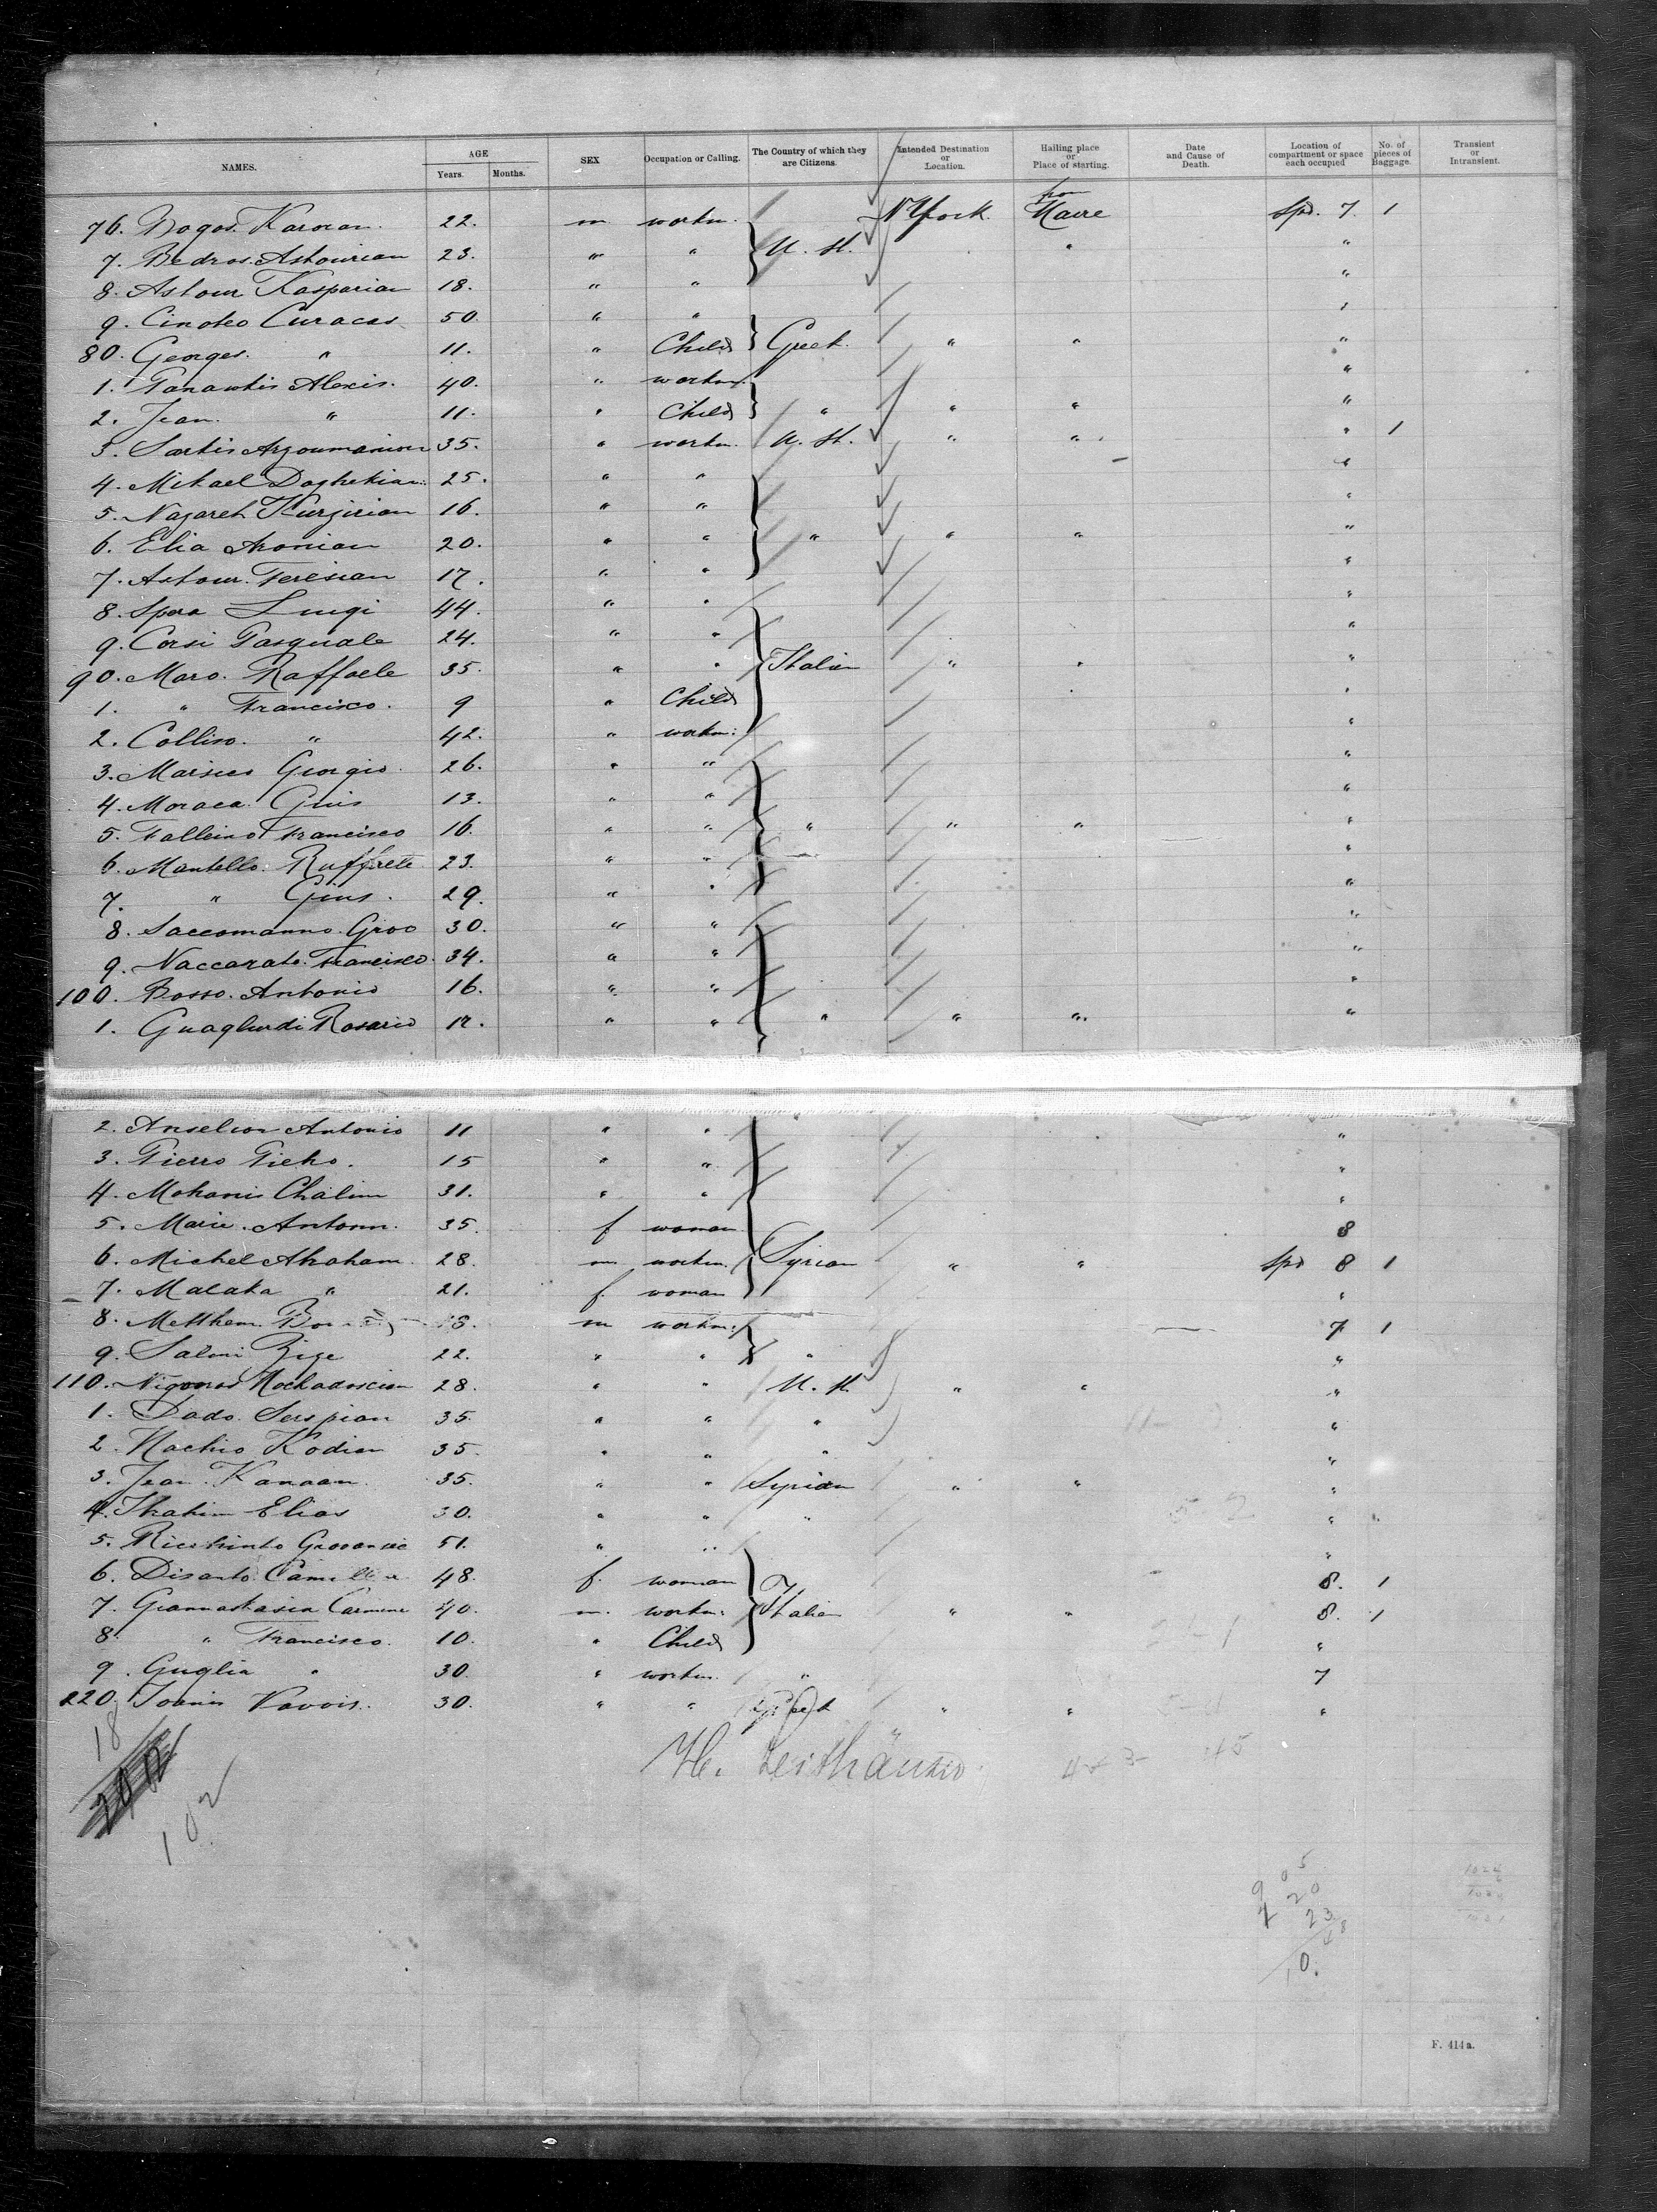 NAMES. AGE SEX Occupation or Calling. The Country of which they are Citizens. Intended Destination or Location. Hailing place or Place of starting. Date and Cause of Death. Location of compartment or space each occupied No. of pieces of Baggage. Transient or Intransient.
Years. Months.
76. Bogos. Karoian. 22. m workm. N York from Havre Spd. 7. 1
7. Bedros. Astourian 23. " " U. St. " "
8. Astour Kasparian 18. " " "
9. Cinoteo Curacas 50. " " "
80. Georges. " 11. " Child Greek. " " "
1. Panantis Alexis. 40. " workm. "
2. Jean. " 11. " Child " " " "
3. Sarkis Argoumanian 35. " workm. U. St. " " " 1
4. Mikael Daghekian. 25. " " "
5. Nazareh Kurjirian 16. " " "
6. Elia Aronian 20. " " " " " "
7. Astour. Teresian 17. " " "
8. Spera Luigi 44. " " "
9. Corsi Pasquale 24. " " "
90. Maro. Raffaele 35. " " Italian " " "
1. " Francisco. 9 " Child " "
2. Colliso. " 42. " workm. "
3. Marsico Giorgio. 26. " " "
4. Moraca. Gius 13. " " "
5. Falleino Francisco 16. " " " " " "
6. Mantello. 23. " " "
7. " Gius. 29. " " "
8. Saccomanno. Giov 30. " " "
9. Naccarato. Francisco. 34. " " "
100. Bosso. Antonio 16. " " "
1. Guagliardi Rosario 17. " " " " " "
2. Anselmo Antonio 11 " " "
3. Pierro Pietro. 15 " " "
4. Mohanis Chalim 31. " " "
5. Marie. Antonn. 35. f woman 8
6. Michel Abraham. 28. m. workm. Syrian " " Spd 8 1
7. Malaka " 21. f. woman "
8. Metthem. m workm. 7 1
9. Salmi Bige 22. " " " "
110. Nigoros 28. " " U. St. " " "
1. Dado. Serspian 35. " " " "
2. Hachio Kodian 35. " " " "
3. Jean. Kanaan. 35. " " Syrian " " "
4. Ibrahim Elias 30. " " " "
5. 51. " " "
6. Disanto. Camilla 48. f. woman 8. 1
7. Giannastasia Carmine 40. m. workm. Italian " " 8. 1
8. " Francisco. 10. " Child "
9. Guglia " 30. " workm. " 7
220. Joanis Vavois. 30. " " Greek " " "
18
102
9 05
7 20
23
10.
F. 414a.